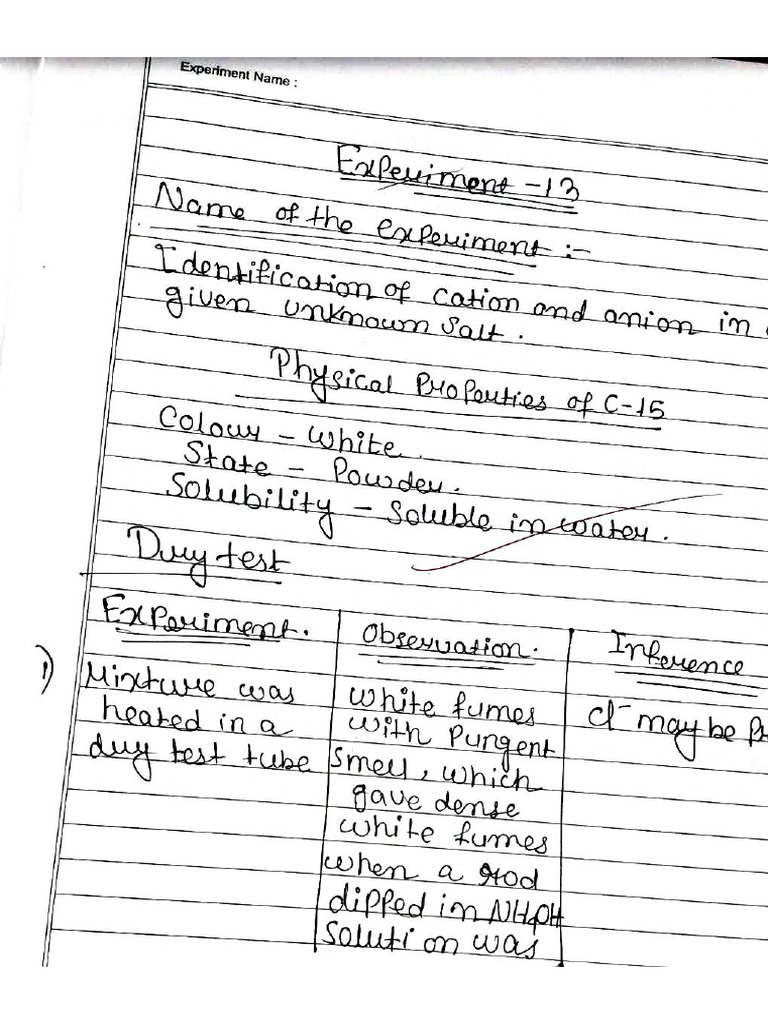 Experiment Name :
Experiment -13
Name of the experiment :-
Identification of cation and anion in
given unknown salt.
Physical Properties of C-15
Colour - White.
State - Powder.
Solubility - Soluble in water.
Dry test
Experiment. Observation. Inference
1) Mixture was white fumes Cl- may be
heated in a with Pungent
dry test tube smell, which
gave dense
white fumes
when a rod
dipped in NH4OH
solution was